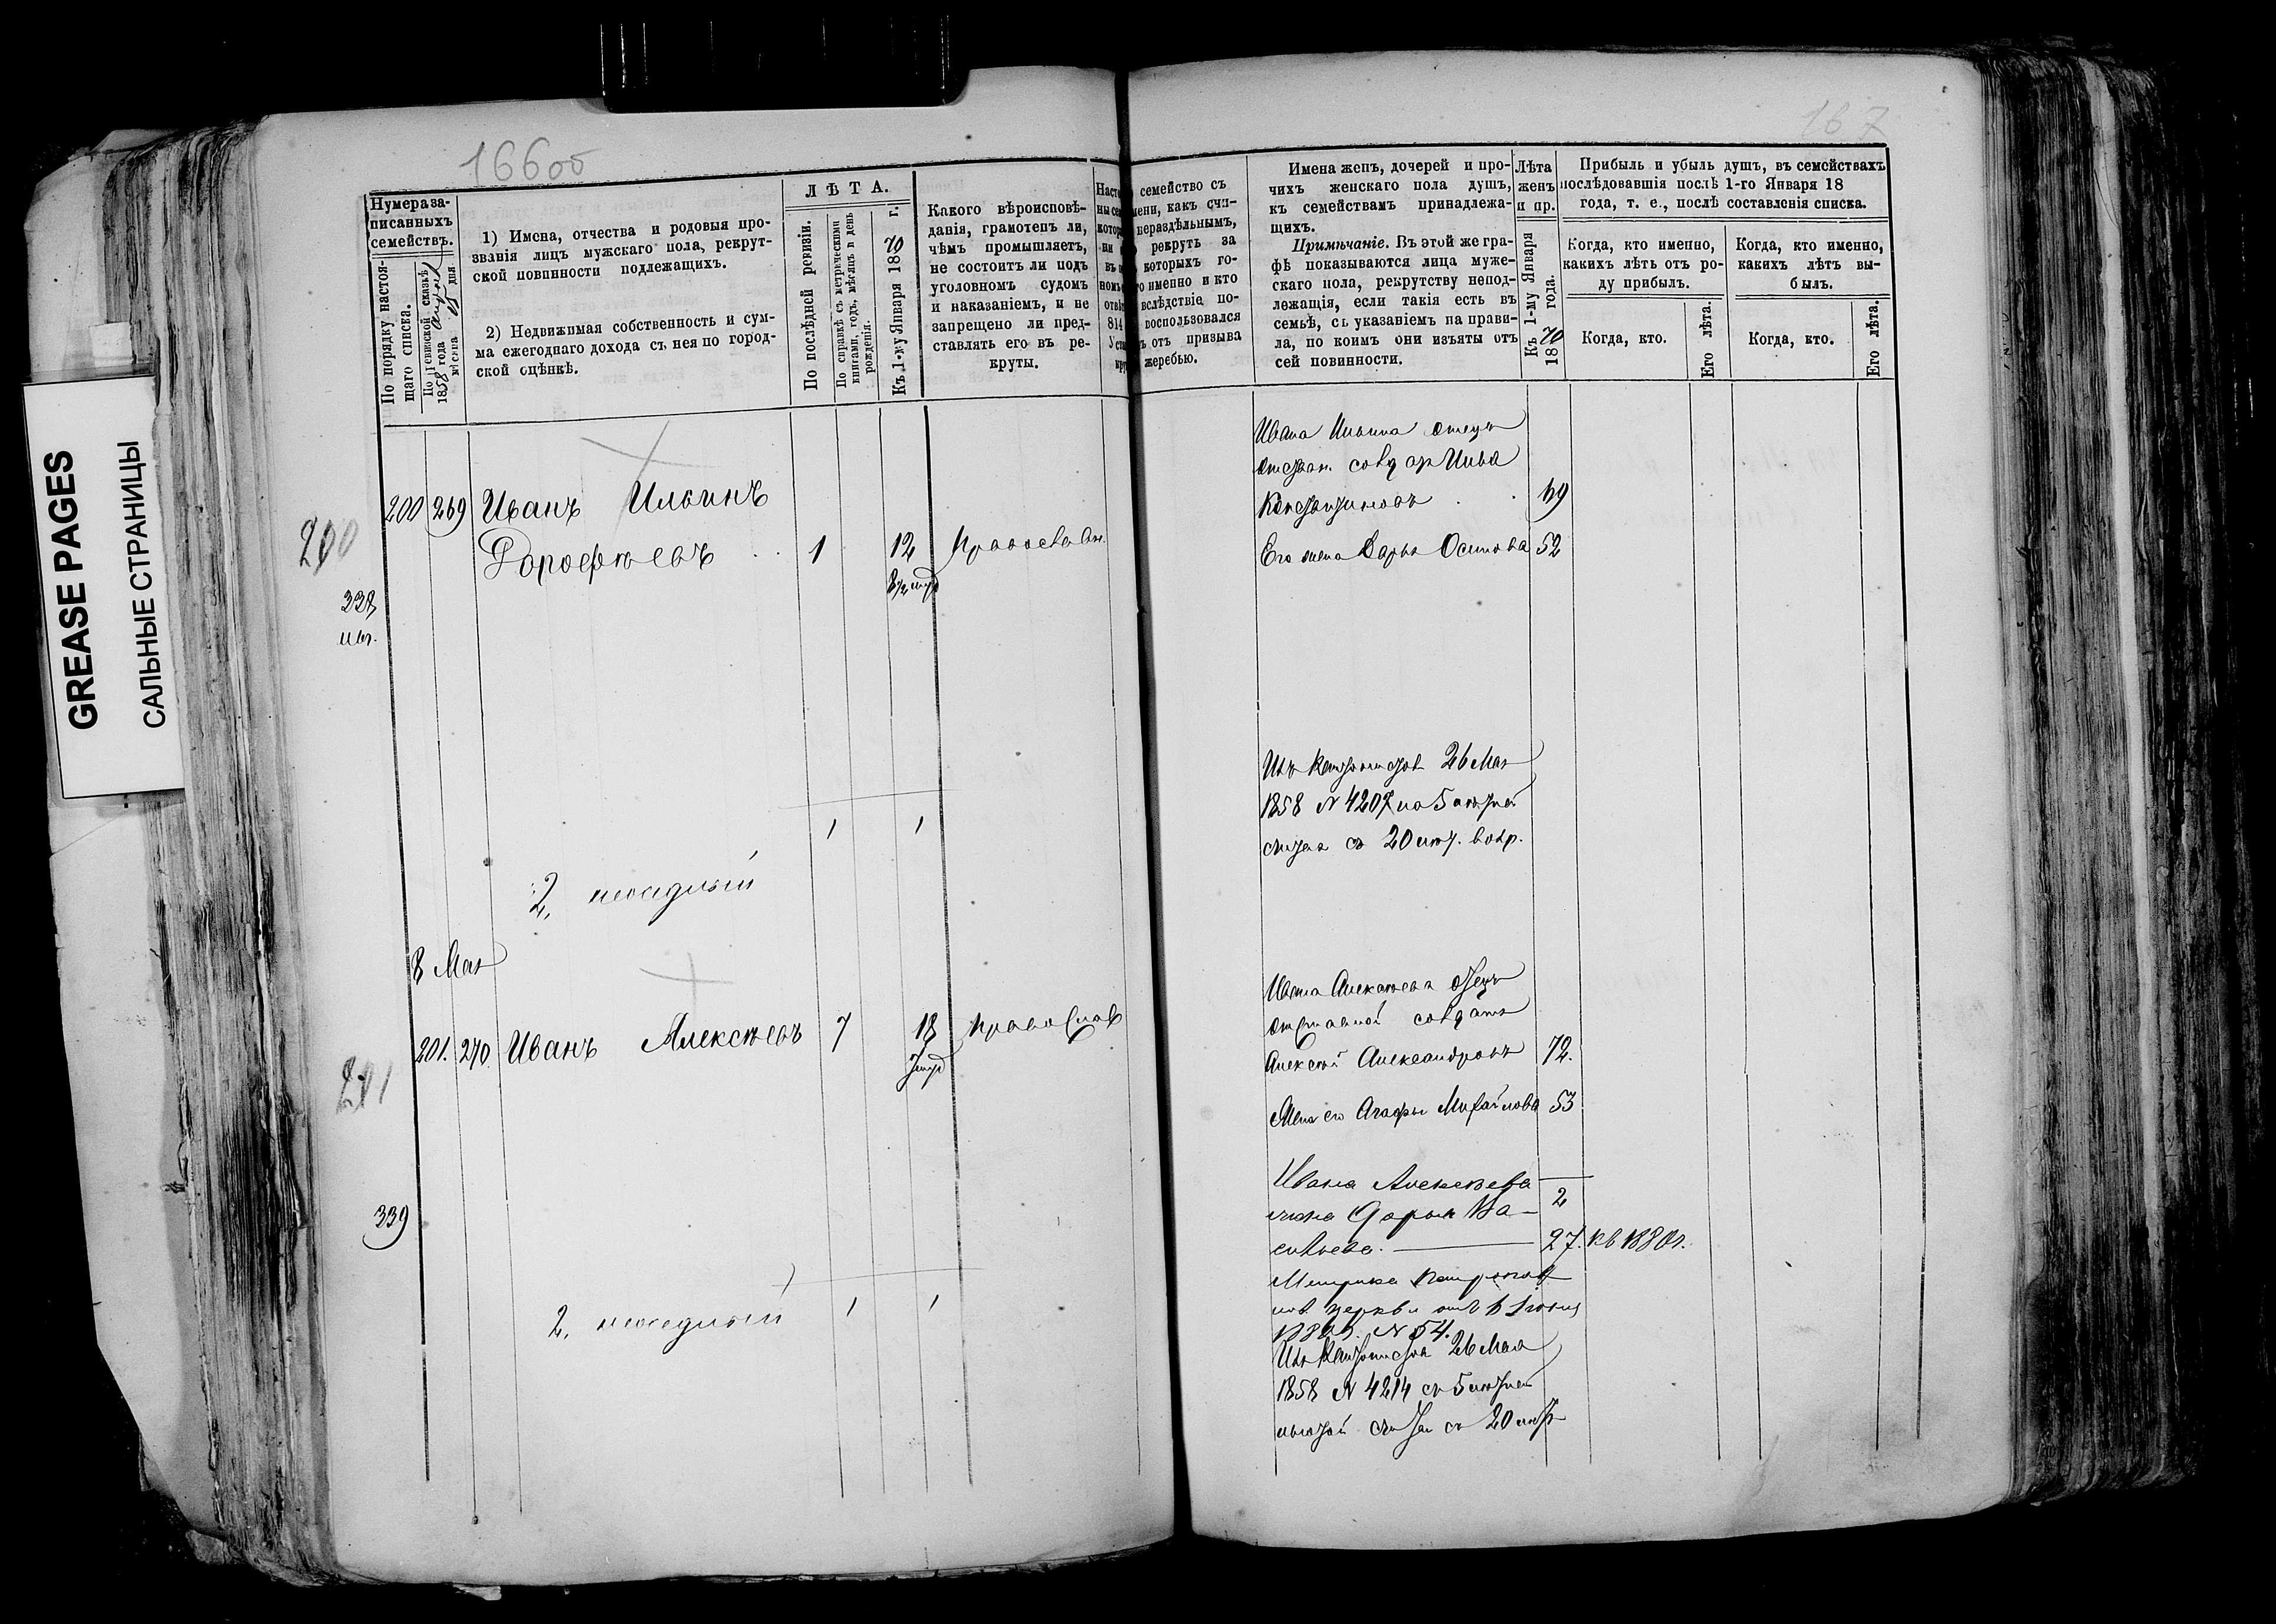 GREASE PAGES
САЛЬНЫЕ СТРАНИЦЫ
166об
Нумера за-
писанныхъ
семействъ.
По порядку настоя-
щаго списка.
По ревизской сказкѣ
1858 года
мѣсяца 15 дня
1) Имена, отчества и родовыя про-
званія лицъ мужскаго пола, рекрут-
ской повинности подлежащихъ.
2) Недвижимая собственность и сум-
ма ежегоднаго дохода съ нея по город-
ской оцѣнкѣ.
ЛѢТА.
По послѣдней ревизіи.
По справкѣ съ метрическими
книгами, годъ, мѣсяцъ и день
рожденія.
Къ 1-му Января 1870 г.
Какого вѣроисповѣ-
данія, грамотенъ ли,
чѣмъ промышляетъ,
не состоитъ ли подъ
уголовномъ судомъ
и наказаніемъ, и не
запрещено ли пред-
ставлять его въ ре-
круты.
200 269 Иванъ Ильинъ
Дорофѣевъ 1 12 православн.
200
338
1 1
2, неосѣдлый
8 Мая
201. 270 Иванъ Алексѣевъ 7 18 Православ
201
339
2, неосѣдлый 1 1
167
семейство съ
мени, какъ счи-
нераздѣльнымъ,
рекрутъ за
которыхъ го-
о именно и кто
вслѣдствіе по-
воспользовался
ъ отъ призыва
жеребью.
Имена женъ, дочерей и про-
чихъ женскаго пола душъ,
къ семействамъ принадлежа-
щихъ.
Примѣчаніе. Въ этой же гра-
фѣ показываются лица муже-
скаго пола, рекрутству непод-
лежащія, если такія есть въ
семьѣ, съ указаніемъ на прави-
ла, по коимъ они изъяты отъ
сей повинности.
Лѣта
женъ
и пр.
Къ 1-му Января
1870 года.
Прибыль и убыль душъ, въ семействахъ
послѣдовавшія послѣ 1-го Января 18
года, т. е., послѣ составленія списка.
Когда, кто именно,
какихъ лѣтъ отъ ро-
ду прибылъ.
Когда, кто именно,
какихъ лѣтъ вы-
былъ.
Когда, кто.
Его лѣта.
Когда, кто.
Его лѣта.
Ивана Ильина отецъ
Константиновъ 69
Его жена Дарья Осипова 52
Изъ Кантонистовъ 26 Мая
1858 № 4207 по 5
съ 20
Ивана Алексѣева отецъ
отставной солдатъ
Алексѣй Александровъ 72.
Жена его Агафья Михайлова 53
Ивана Алексѣева
жена Дарья Ва- 2
сильева. 27. къ 1880 г.
Метрика
церкви
№ 54.
Изъ Кантонистовъ 26 Мая
1858 № 4214 съ 5
съ 20